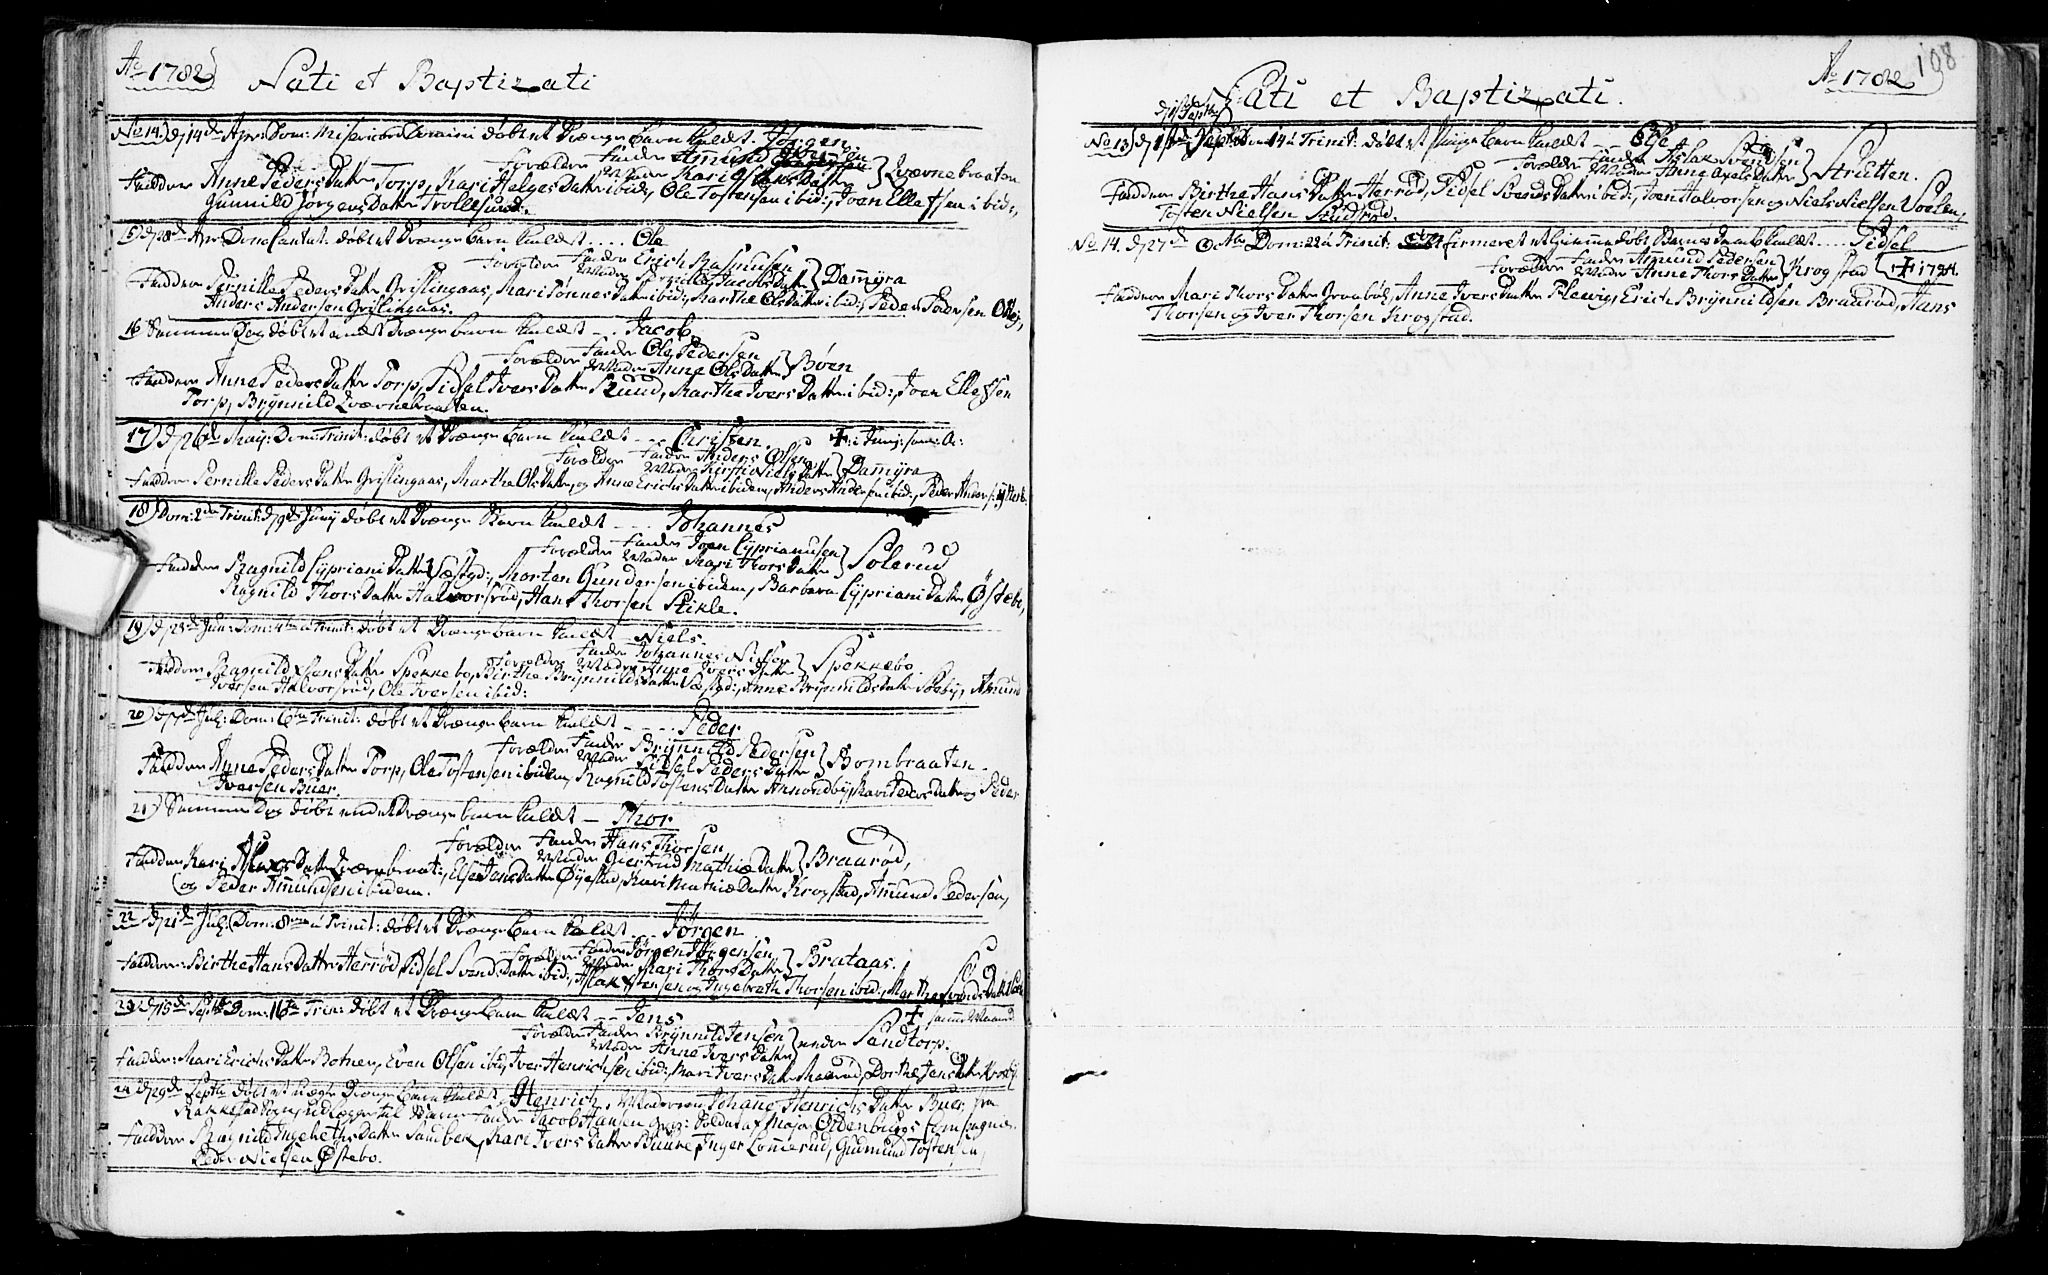 Ao 1782
Nati et Baptizati
No 14) d 14de Apr: Dom: Misericord Domini döbt et Drænge Barn kaldt. Jörgen
Forældre Fader Amund
Moder Kari } Qværnebraaten
Faddere Anne Peders Datter Torp, Kari Helges Datter ibid, Ole Tostensen ibid:, Joen Ellefsen ibid:,
Gunnild Jörgens Datter Trollesund.
15) d 28de Apr Dom Cantat: döbt et Drænge Barn kaldt .... Ole
Forældre Fader Erich Rasmusen
Moder Pernille Jacobs Datter } Dam̄yra
Faddere Pernille Peders Datter Grislingaas, Mari Tönnes Datter ibid:, Marthe Ols Datter ibid:, Peder Pedersen
Anders Andersen Grislingaas.
16 Samme Dag döbt et andet Drænge barn kaldt --. Jacob
Forældre Fader Ole Pedersen
Moder Anne Ols Datter } Böen
Faddere Anne Peders Datter Torp, Sidsel Ivers Datter Ruud, Marthe Ivers Datter ibid:, Joen Ellefsen
Torp, Brÿnnild Qværnebraaten.
17) d 26de Maij: Dom: Trinit: döbt et Drænge Barn kaldt --- Christen. ✝: i Junij: sam: A:
Forældre Fader Anders Olsen
Moder Kirstie Niels Datter } Dam̄yra
Faddere Pernille Peders Datter Grislingaas, Marthe Ols Datter, og Anne Erichs Datter ibidem, Anders Andersen ibid:, Peder
18) Dom: 2da Trinit: d 9de Junij döbt et Drænge Barn kaldt ---- Johannes
Forældre Fader Joen Cyprianusen
Moder Mari Thors Datter } Solerud
Faddere Ragnild Cypriani Datter Sæstad:, Morten Gundersen ibidem, Barbara Cypriani Datter Östebo,
Ragnild Thors Datter Halvorsröd, Hans Thorsen Stikle.
19) d 23de Jun: Dom: 4ta a Trinit: döbt et Drænge barn kaldt – Niels.
Forældre Fader Johannes Nielsen
Moder Anne Ivers Datter } Spekkebo
Faddere Ragnild Datter Spekkebo, Birthe Brÿnnilds Datter Sæstad:, Anne Brÿnnilds Datter, Amund
Iversen Halvorsröd, Ole Iversen ibid:
20) d 7de Julj: Dom: 6ta Trinit: döbt et Drænge Barn kaldt ---- Peder
Forældre Fader Brÿnnild Pedersen
Moder Sidsel Peders Datter } Bombraaten.
Faddere Anne Peders Datter Torp, Ole Tostensen ibidem, Ragnild Tostens Datter Amundbÿ, Kari Peders Datter og Peder
Iversen Buer.
21) Samme Dag döbt endet Drænge barn kaldt — Thor
Forældre Fader Hans Thorsen
Moder Giertrud Mathiæ Datter } Braaröd,
Faddere Kari Datter Qværnbraat:, Else Jens Datter Öÿestad, Kari Mathiæ Datter Krogstad, Amund Pedersen,
og Peder Amundsen ibidem.
22 d 21de Julj: Dom: 8va a Trinit: döbt et Drænge Barn kaldt --- Jörgen
Forældre Fader Jörgen Jörgensen
Moder Mari Thors Datter } Brataas.
Faddere: Birthe Hans Datter Herröd, Sidsel Svends Datter ibid:, Aslak og Ingebreth Thorsen ibid:, Marthe Svends Datter
23 d 15de Septbr Dom: 16ta Trin: döbt et Drænge Barn kaldt --- Jens ✝ samme Maaned
Forældre Fader Brÿnnild Jensen
Moder Anne Ivers Datter } under Sandtorp.
Faddere: Mari Erichs Datter Botner, Even Olsen ibid, Iver Henrichsen ibid:, Mari Ivers Datter, Dorthe Jens Datter
24 d 29de Septbr döbt et uægte Drænge Barn kaldt, Henrich, Moderen Johanne Henrichs Datter Buer, fra
Rakkestad Sogn, udlagger til Barne Fader Jacob Hansen Soldat af Major Oldenburgs Compagnie.
Faddere Ragnild Ingebreths Datter Sandbek, Kari Ivers Datter, Inger Lonnerud, Gudmund Tostensen,
Peder Nielsen Östebo.
108
Ao 1782
Nati et Baptizati.
No 13) Septbr Dom 14 a Trinit: döbt et Pige Barn kaldt -- Else
Forældre Fader Aslak Svendsen
Moder Anne Axels Datter } Strutten.
Faddere Birthe Hans Datter Herröd, Sidsel Svends Datter ibid:, Joen Halvorsen og Niels Nielsen
Tosten Nielsen
No 14. d 27de Octbr Dom: 22 a Trinit: confirmeret et hiemme döbt Barnes Daab kaldt .... Sidsel
Forældre Fader Amund Pedersen
Moder Anne Thors Datter } Krogstad ✝ 1784.
Faddere Mari Thors Datter, Anne Ivers Datter, Erich Brÿnnildsen Braaröd, Hans
Thorsen og Iver Thorsen Krogstad.